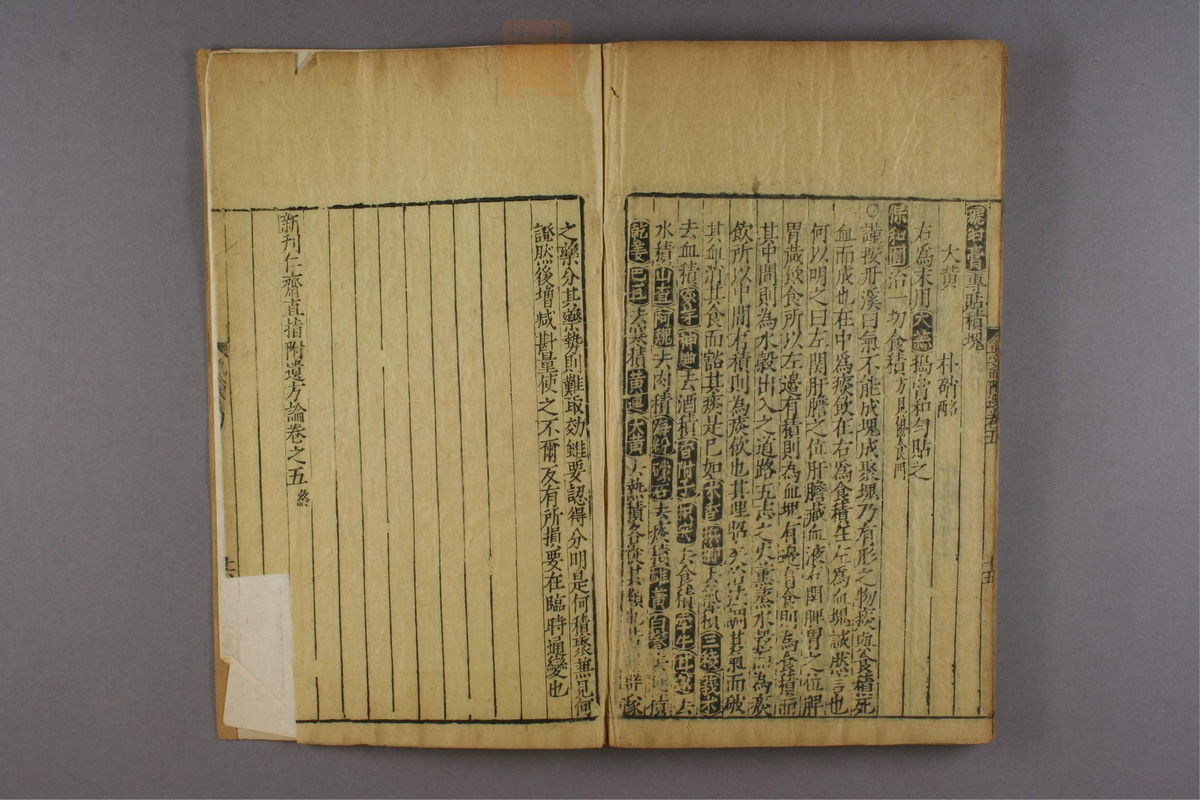 琥珀膏專貼積塊
大黄　朴硝各
右爲末用大蒜搗膏和勻貼之
保和圓治一切食積方見傷食門
○謹按丹溪曰氣不能成塊成聚塊乃有形之物痰與食積死
血而成也在中爲痰飲在右爲食積在左爲血塊誠然言也
何以明之曰左関肝膽之位肝膽藏血液右関脾胃之位脾
胃藏飲食所以左邊有積則為血塊右邊有食則為食積而
其中間則為水穀出入之道路五志之火薰蒸水穀而為痰
飲所以中間有積則為痰飲也其理昭矣治法調其氣而破
其血消其食而豁其痰是已如木香梹榔去氣積三稜莪朮
去血積麥芽神曲去酒積香附子枳實去食積牽牛甘遂去
水積山查阿魏去肉積海粉礞石去痰積雄黄白礬去積
乾姜巴豆去寒積黄連大黄去熱積各從其類也群隊
之藥分其藥勢則難取効雖要認得分明是何積聚兼見何
證然後增减斟量使之不爾反有所損要在臨時通變也
新刋仁齋直指附遺方論卷之五終